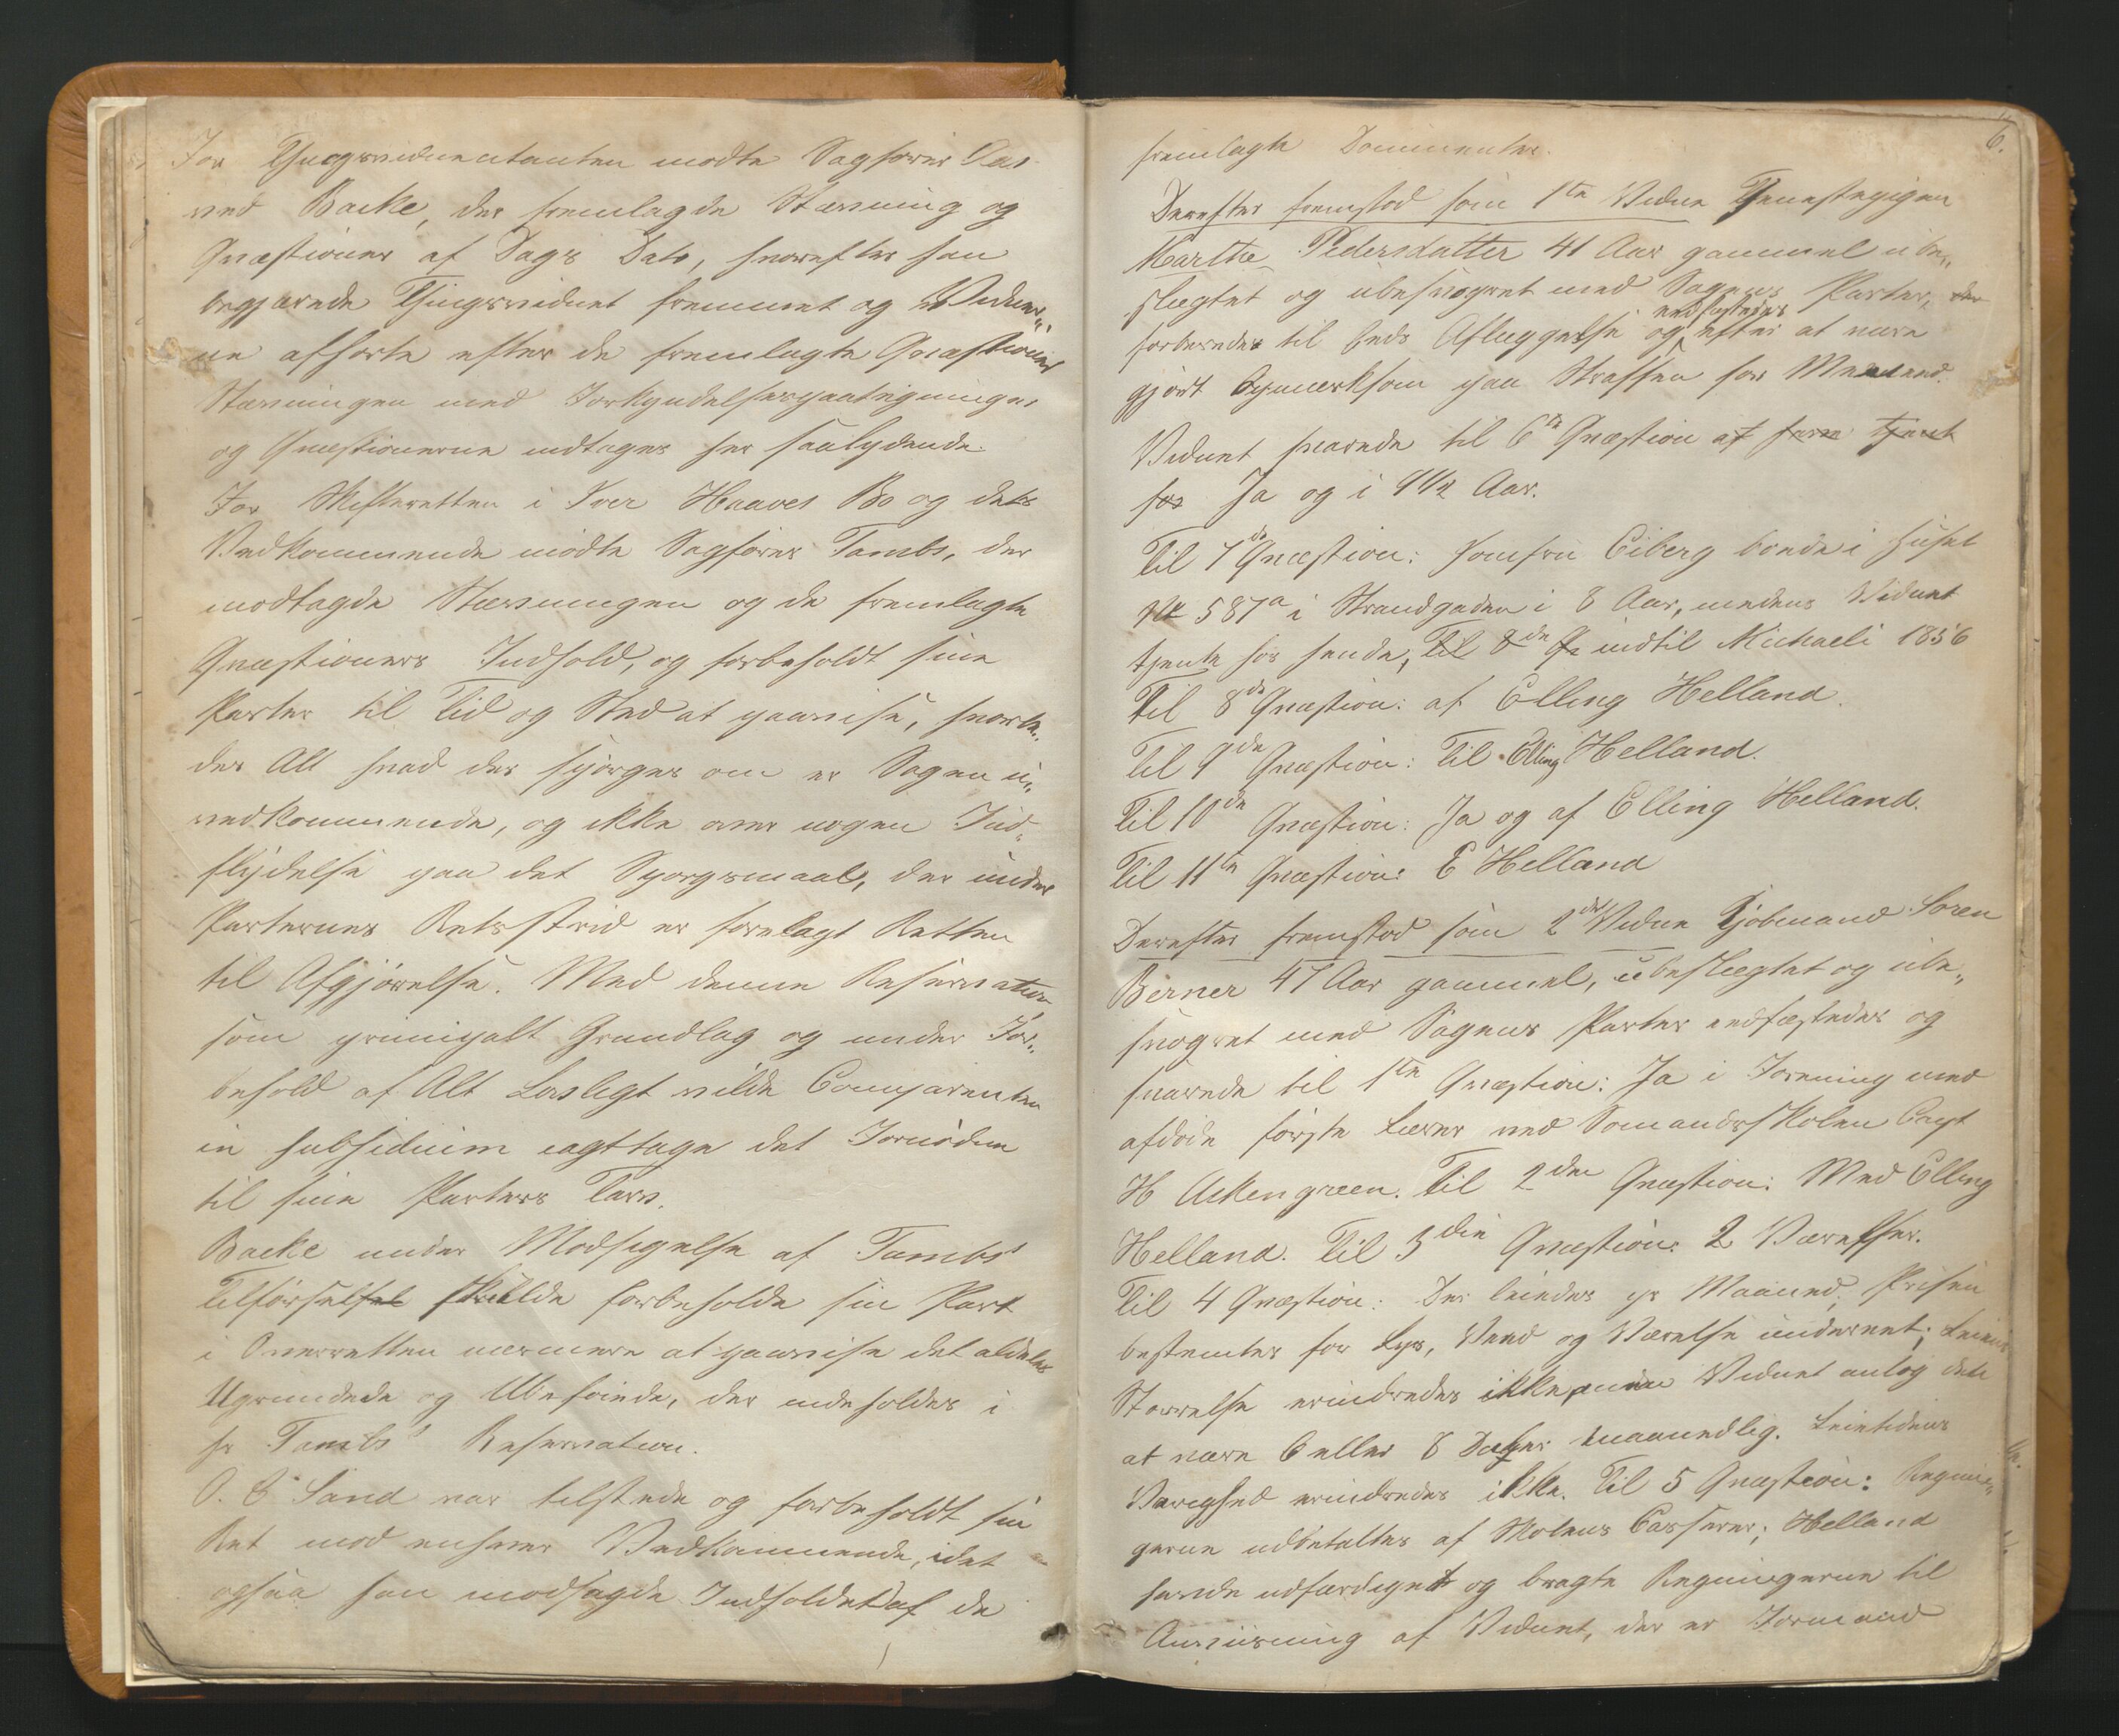 For Thingsvidnecitanten mødte Sagfører Aas
ved Backe, der fremlagde Stævning og
Qvæstioner af Dags Dato, hvorefter han
begjærede Thingsvidnet fremmet og Vidner„
ne afhørte efter de fremlagte Qvæstioner
Stævningen med Forkyndelsespaategninger
og Qvæstionerne indtages her saalydende.
For Skifteretten i Iver Haaves Bo og dets
Vedkommende mødte Sagfører Tambs, der
modtagde Stævningen og de fremlagte
Qvæstioners Indhold, og forbeholdt sine
Parter til Tid og Sted at paavise, hvorle„
des Alt hvad der spørges om er Sagen u„
vedkommende, og ikke over nogen Ind„
flydelse paa det Spørgsmaal, der under
Parternes Retsstrid er forelagt Retten
til Afgjørelse. Med denne Reservation
som principalt Grundlag og under For„
behold af Alt Lovligt vilde Comparenten
in subsidium iagttage det Fornødne
til sine Parters Tarv.
Backe under Modsigelse af Tambs'
Tilførsel skulde forbeholde sin Part
i Overretten nærmere at paavise det aldeles
Ugrundede og Ubeføiede, der indeholdes i
hr Tambs' Reservation.
O. E Sand var tilstede og forbeholdt sin
Ret mod enhver Vedkommende, idet
ogsaa han modsagde Indholdet af de
6.
fremlagte Documenter.
Derefter fremstod som 1te Vidne Tjenestepigen
Marthe Pedersdatter 41 Aar gammel ube„
slægtet og ubesvogret med Sagens Parter, der
forberedes til Eeds Aflæggelse og edfæstedes efter at være
gjort opmærksom paa Straffen for Meeneed.
Vidnet svarede til 6te Qvæstion at have tjent
hos Ja og i 9 1/2 Aar.
Til 7de Qvæstion: Jomfru Eiberg boede i Huset
No 587a i Strandgaden i 8 Aar, medens Vidnet
tjente hos hende, Til 8de Qv indtil Michaeli 1856
Til 8de Qvæstion: af Elling Helland.
Til 9de Qvæstion: Til Elling Helland.
Til 10de Qvæstion: Ja og af Elling Helland.
Til 11te Qvæstion: E Helland
Derefter fremstod som 2det Vidne Kjøbmand Søren
Berner 47 Aar gammel, ubeslægtet og ube„
svogret med Sagens Parter edfæstedes og
svarede til 1te Qvæstion: Ja i Forening med
afdøde første Lærer ved Sømandsskolen Capt
H Ackengreen. Til 2den Qvæstion: Med Elling
Helland. Til 3die Qvæstion: 2 Værelser.
Til 4 Qvæstion: Der leiedes pr Maaned; Prisen
bestemtes for Lys, Veed og Værelse underet; Leiens
Størrelse erindredes ikke, men Vidnet antog den
at være 6 eller 8 Daler maanedlig. Leietidens
Varighed erindredes ikke. Til 5 Qvæstion: Regnin„
gerne udbetaltes af Skolens Casserer; Helland
havde udfærdiget og bragte Regningerne til
Anviisning af Vidnet, der er Formand